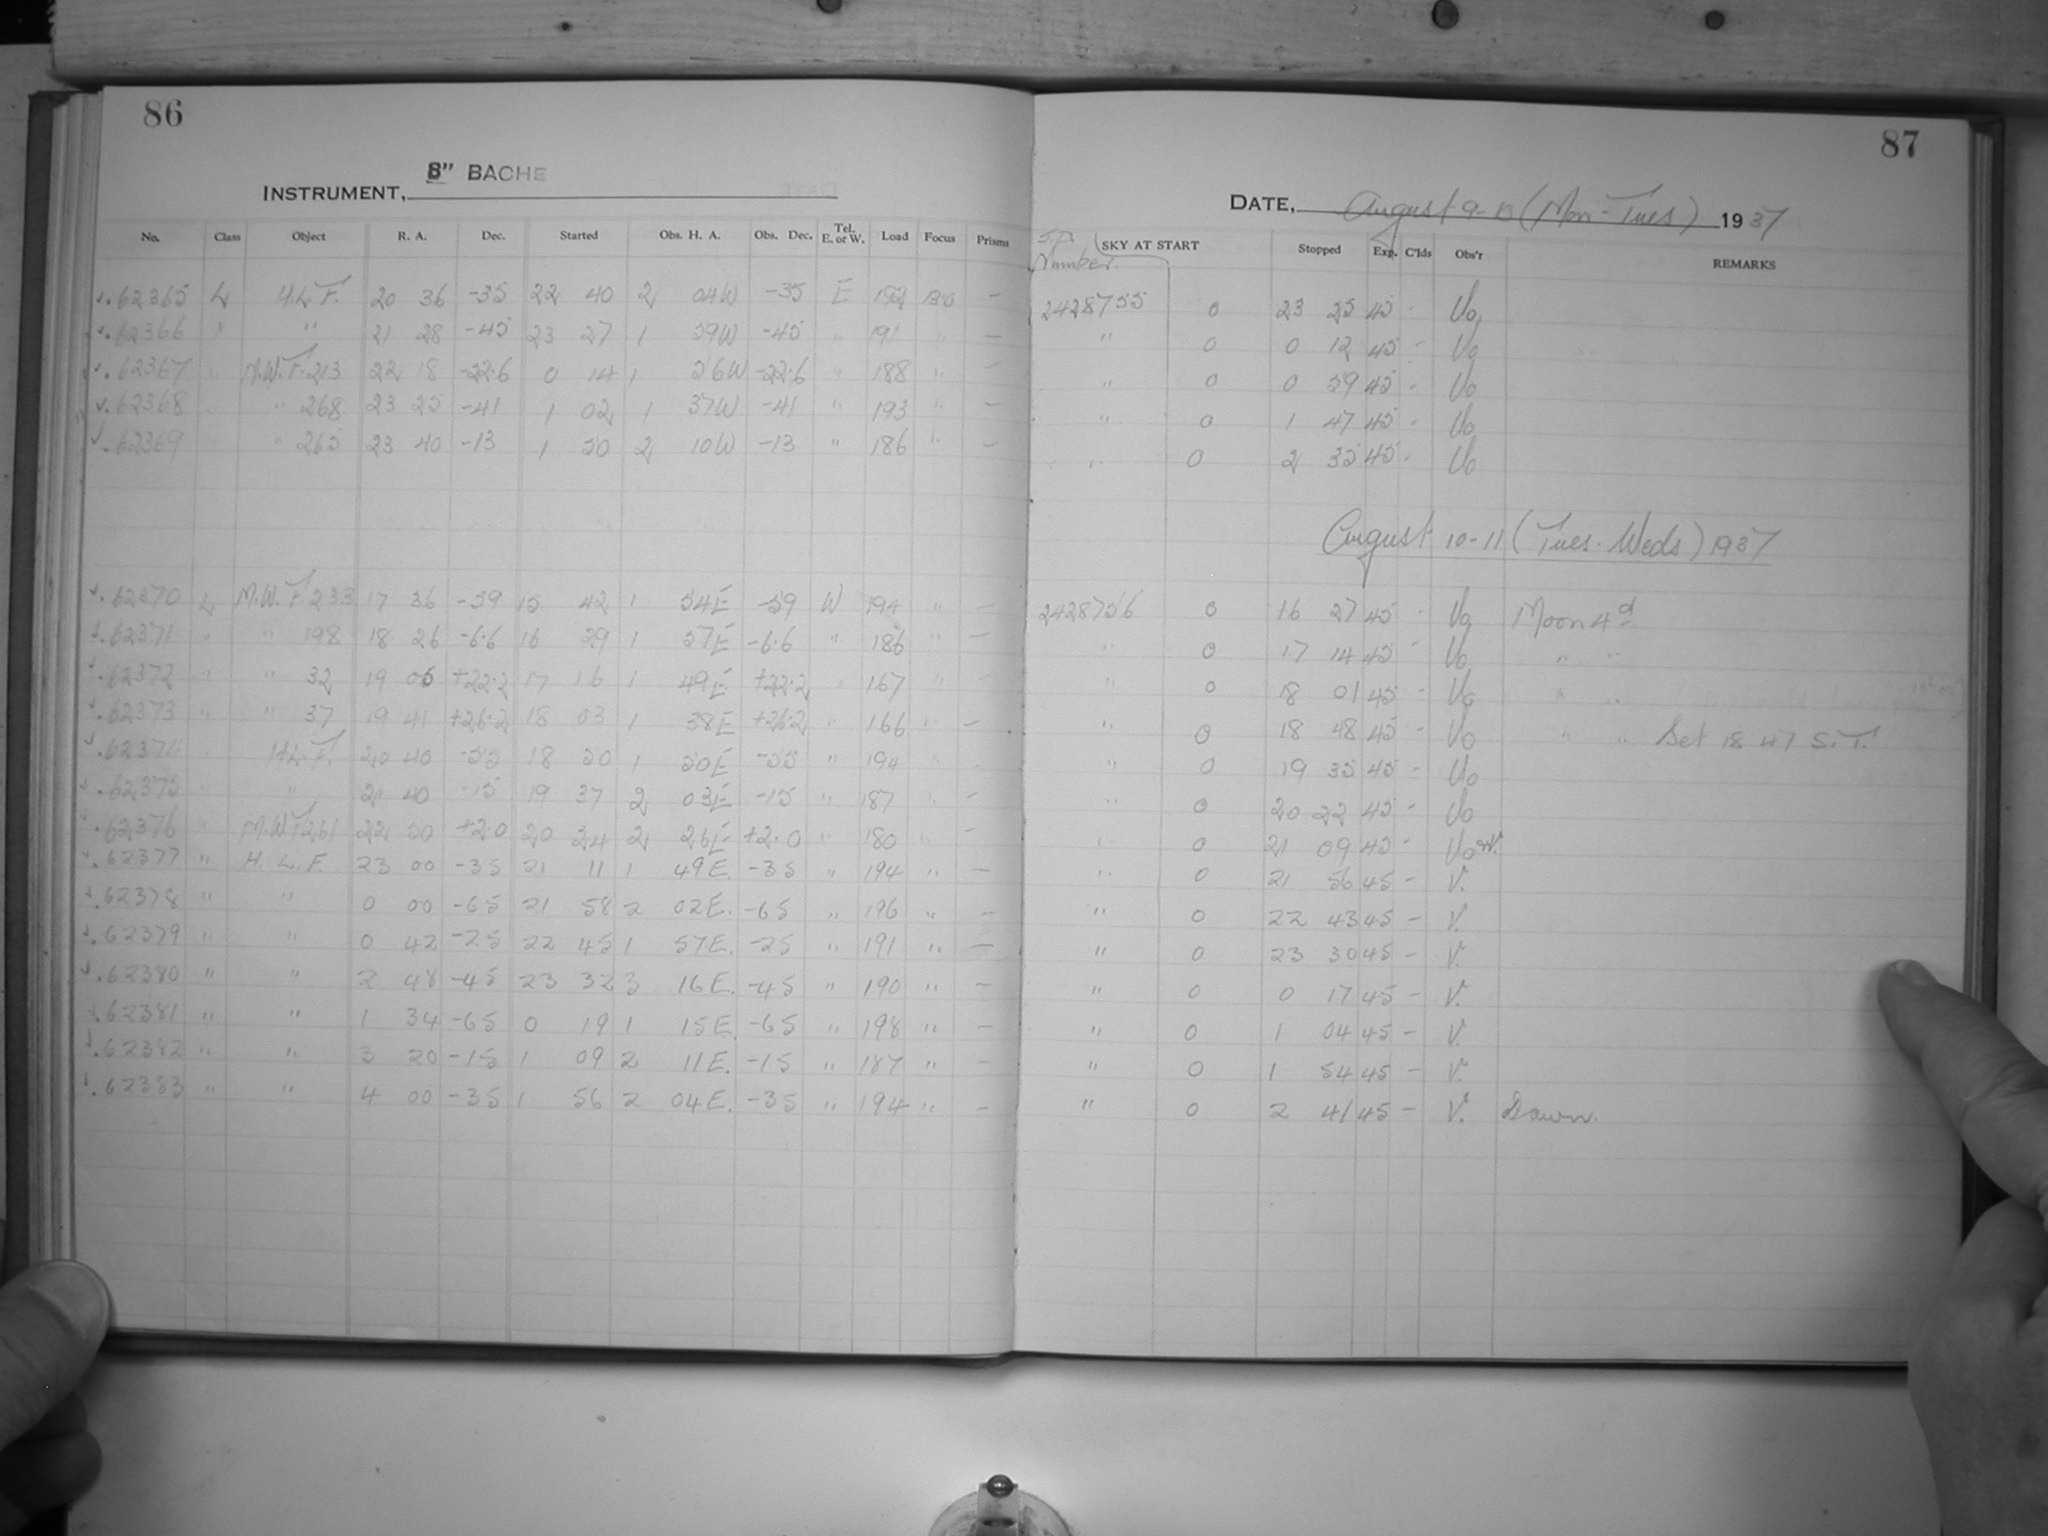 86
8" BACHE
INSTRUMENT,
No. Class Object R. A. Dec. Started Obs. H. A. Obs. Dec. Tel. E. or W. Load Focus Prisms
62365 L H.L.F. 20 36 -35 22 40 2 04W -35 E 192 –
62366 " " 21 28 -45 23 27 1 59W -45 " 191 " –
62367 " M.W.F. 213 22 18 -22.6 0 14 1 56W -22.6 " 188 " –
62368 " 268 23 25 -41 1 02 1 37W -41 " 193 " –
62369 " 265 23 40 -13 1 50 2 10W -13 " 186 " –
62370 L M.W.F. 233 17 36 -59 15 42 1 54E -59 W 194 " –
62371 " " 198 18 26 -6.6 16 29 1 57E -6.6 " 186 " –
62372 " " 32 19 05 +22.2 17 16 1 49E +22.2 " 167 " –
62373 " " 37 19 41 +26.2 18 03 1 38E +26.2 " 166 " –
62374 H.L.F. 20 40 -55 18 50 1 50E -55 " 194 "
62375 " " 21 40 -15 19 37 2 03E -15 " 187 " –
62376 " M.W.F. 261 22 50 +2.0 20 24 2 26E +2.0 " 180 " –
62377 " H. L. F. 23 00 -35 21 11 1 49E. -35 " 194 " –
62378 " " 0 00 -65 21 58 2 02E. -65 " 196 " –
62379 " " 0 42 -25 22 45 1 57E. -25 " 191 " –
62380 " " 2 48 -45 23 32 3 16E. -45 " 190 " –
62381 " " 1 34 -65 0 19 1 15E. -65 " 198 " –
62382 " " 3 20 -15 1 09 2 11E. -15 " 187 " –
62383 " " 4 00 -35 1 56 2 04E. -35 " 194 " –
87
DATE, August 9-10 (Mon-Tues) 1937
J.D. Number SKY AT START Stopped Exp. C'lds Obs'r REMARKS
2428755 0 23 25 45 - Uo
" 0 0 12 45 - Uo
" 0 0 59 45 - Uo
" 0 1 47 45 - Uo
" 0 2 35 45 - Uo
August 10-11 (Tues-Weds) 1937
2428756 0 16 27 45 - Uo Moon 4d
" 0 17 14 45 - Uo " "
" 0 18 01 45 - Uo " "
" 0 18 48 45 - Uo " " Set 18 47 S.T.
" 0 19 35 45 - Uo
" 0 20 22 45 - Uo
" 0 21 09 45 - Uo
" 0 21 56 45 - V.
" 0 22 43 45 - V.
" 0 23 30 45 - V.
" 0 0 17 45 - V.
" 0 1 04 45 - V.
" 0 1 54 45 - V.
" 0 2 41 45 - V. Dawn.